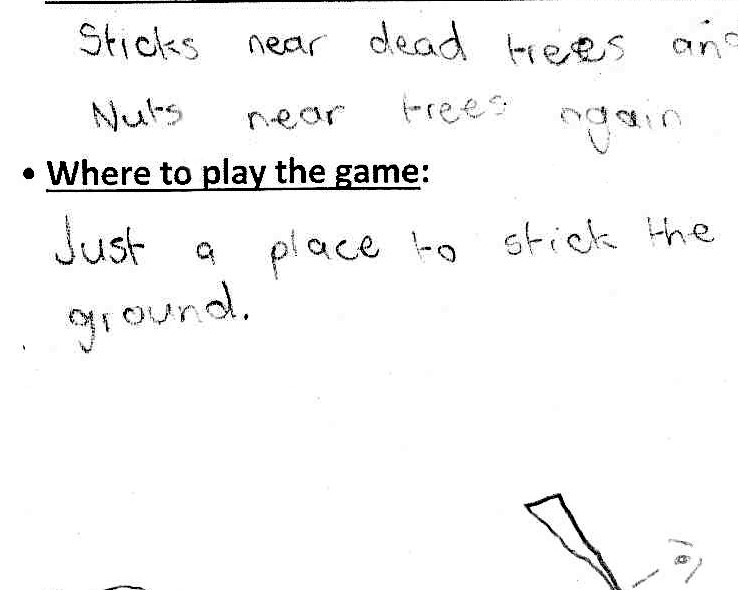 Sticks near dead trees and
Nuts near trees again
• Where to play the game:
Just a place to stick the
ground.